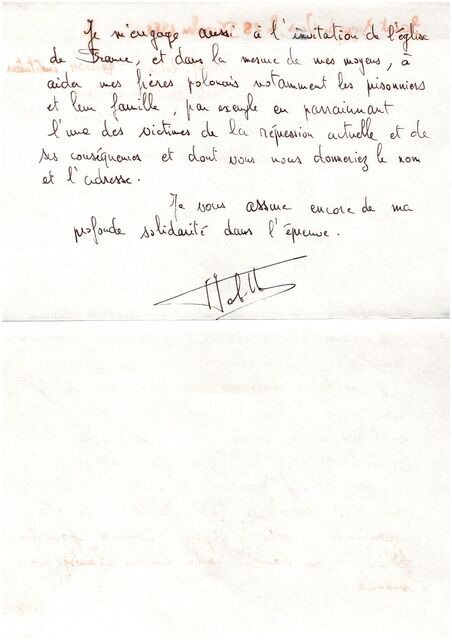 Je m'engage aussi à l'invitation de l'église
de France, et dans la mesure de mes moyens, à
aider mes frères polonais notamment les prisonniers
et leur famille, par exemple en parrainant
l'une des victimes de la répression actuelle et de
ses conséquences et dont vous nous donneriez le nom
et l'adresse.
Je vous assure encore de ma
profonde solidarité dans l'épreuve.